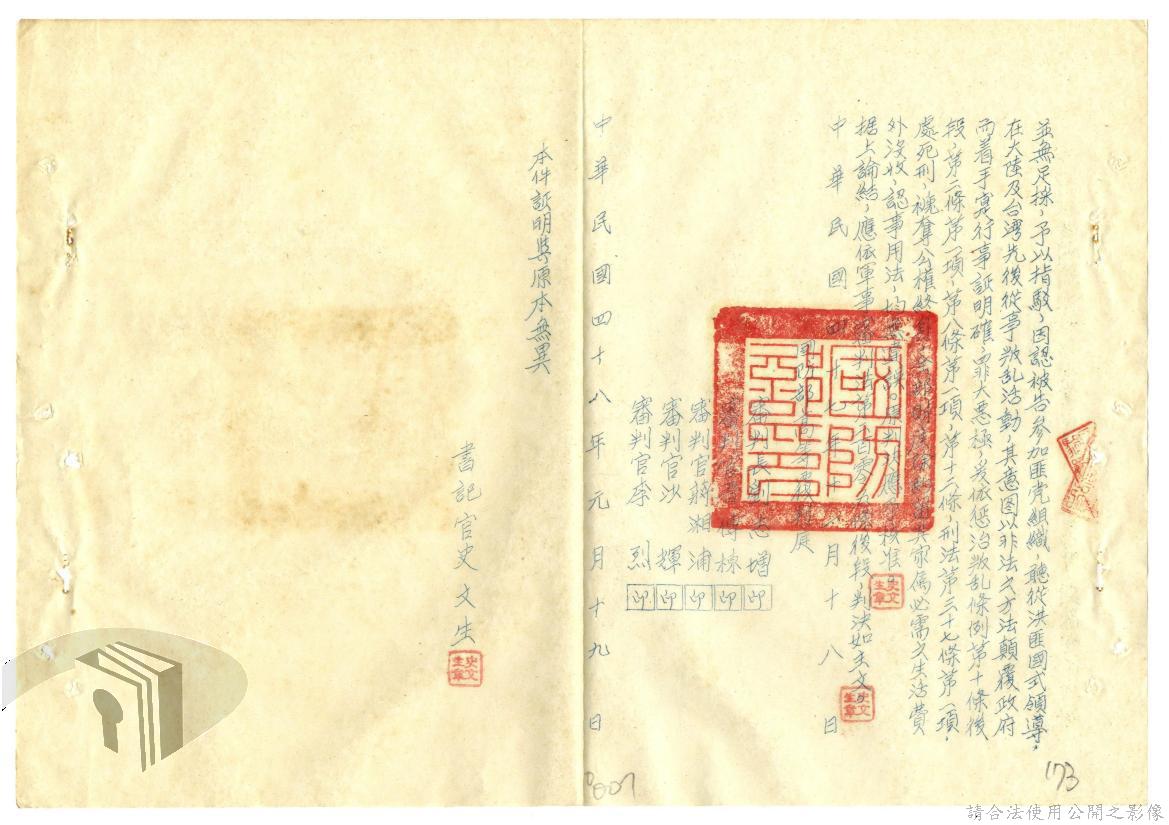 並無足採，予以指駁，因認被告參加匪党組織，聽從洪匪國式領導，
在大陸及台湾先後從事叛乱活動，其意图以非法之方法顛覆政府
而着手实行事証明確，罪大恶極，爰依惩治叛乱条例第十條後
段，第二條第一項，第八條第一項，第十二條，刑法第三十七條第一項，
處死刑，褫奪公權終身，全部財產除酌留其家屬必需之生活費
外沒收，認事用法，均無違誤。原判決應予核准。
据上論結，應依軍事審判法第一百零五條後段，判決如主文。
中華民國四十七年十月十八日
國防部高等覆判庭
審判長劉志增 印
審判官 棟 印
審判官蔣湘浦 印
審判官沙輝 印
審判官李烈 印
中華民國四十八年元月十九日
本件証明與原本無異
書記官史文生
史文生章
史文生章
史文生章
173
請合法使用公開之影像